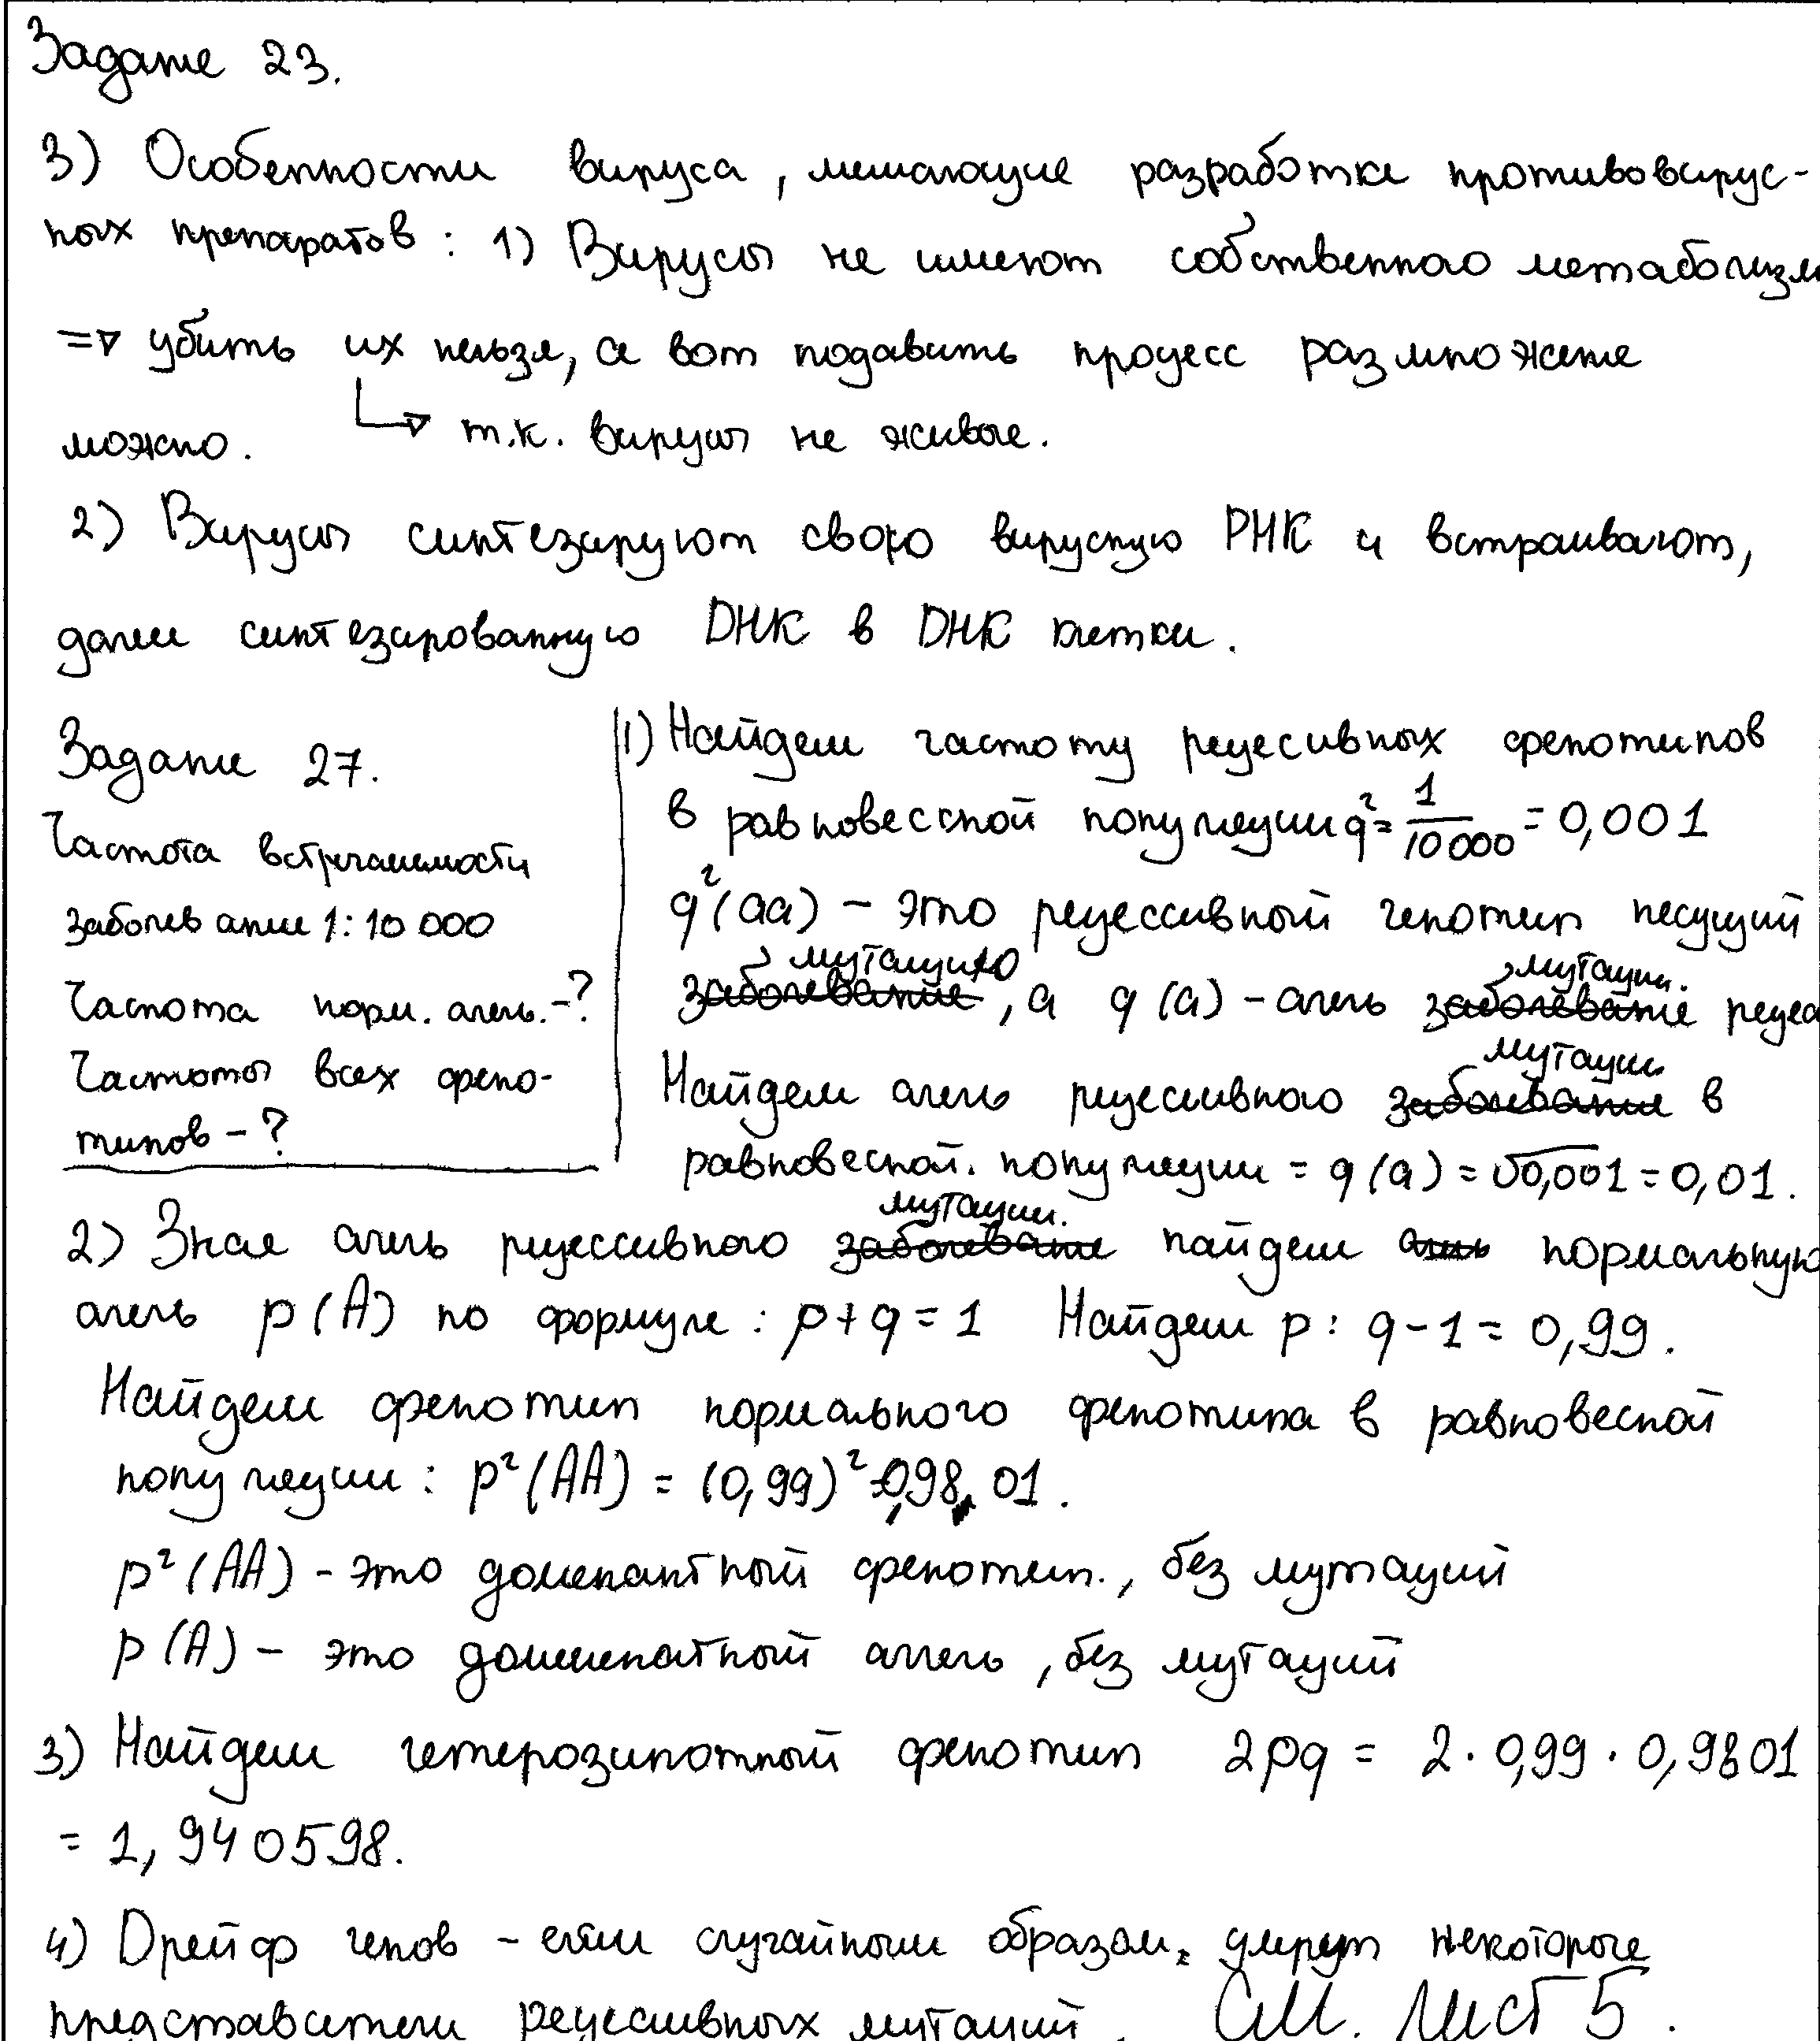 Задание 23.
3) Особенности вируса, мешающие разработке противовирус-
ных препаратов: 1) Вирусы не имеют собственного метаболизм
=> убить их нельзя, а вот подавить процесс размножение
можно. ↳ т.к. вирусы не живые.
2) Вирусы синтезируют свою вирусную РНК и встраивают,
далее синтезированную ДНК в ДНК клетки.
Задание 27.
Частота встречаемости
заболевание 1:10 000
Частота норм. аллель. - ?
Частоты всех фено-
типов - ?
1) Найдем частоту рецесивных фенотипов
в равновесной популяции q² = 1/10000 = 0,001
q²(aa) - это рецессивный генотип несущий
~~заболевание~~ мутацию, а q(a) - аллель ~~заболевание~~ мутации. рецес
Найдем аллель рецессивного ~~заболевание~~ мутации в
равновесной. популяции = q(a) = √0,001 = 0,01.
2) Зная аллель рецессивного ~~заболевание~~ мутации. найдем ~~алль~~ нормальную
аллель p(A) по формуле: p+q=1 Найдем p: q-1=0,99.
Найдем фенотип нормального фенотипа в равновесной
популяции: p²(AA) = (0,99)² = 0,98 01.
p²(AA) - это доменантный фенотип., без мутаций
p(A) - это доминатный аллель, без мутаций
3) Найдем гетерозиготный фенотип 2pq = 2 · 0,99 · 0,9801
= 1,940598.
4) Дрейф генов - если случайным образом, умрут некоторые
представители рецессивных мутаций. См. Лист 5.